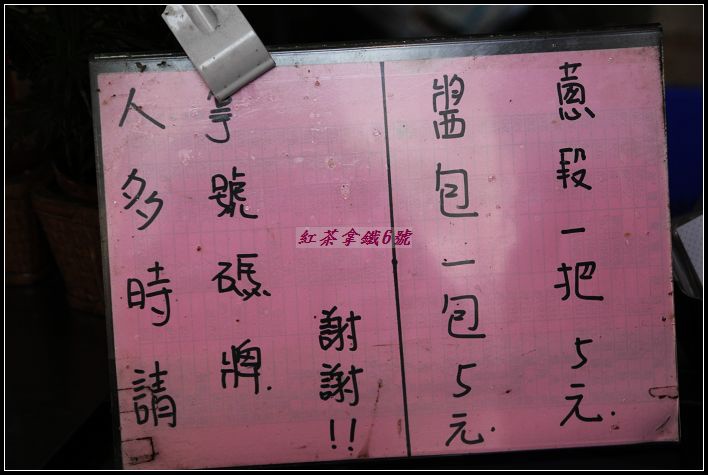 蔥段一把5元.
醬包一包5元.
人多時請
拿號碼牌.
謝謝!!
紅茶拿鐵6號